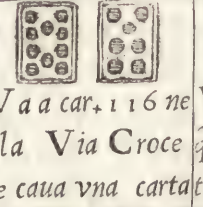 Va a car. 116 ne
la Via Croce
e caua vna carta